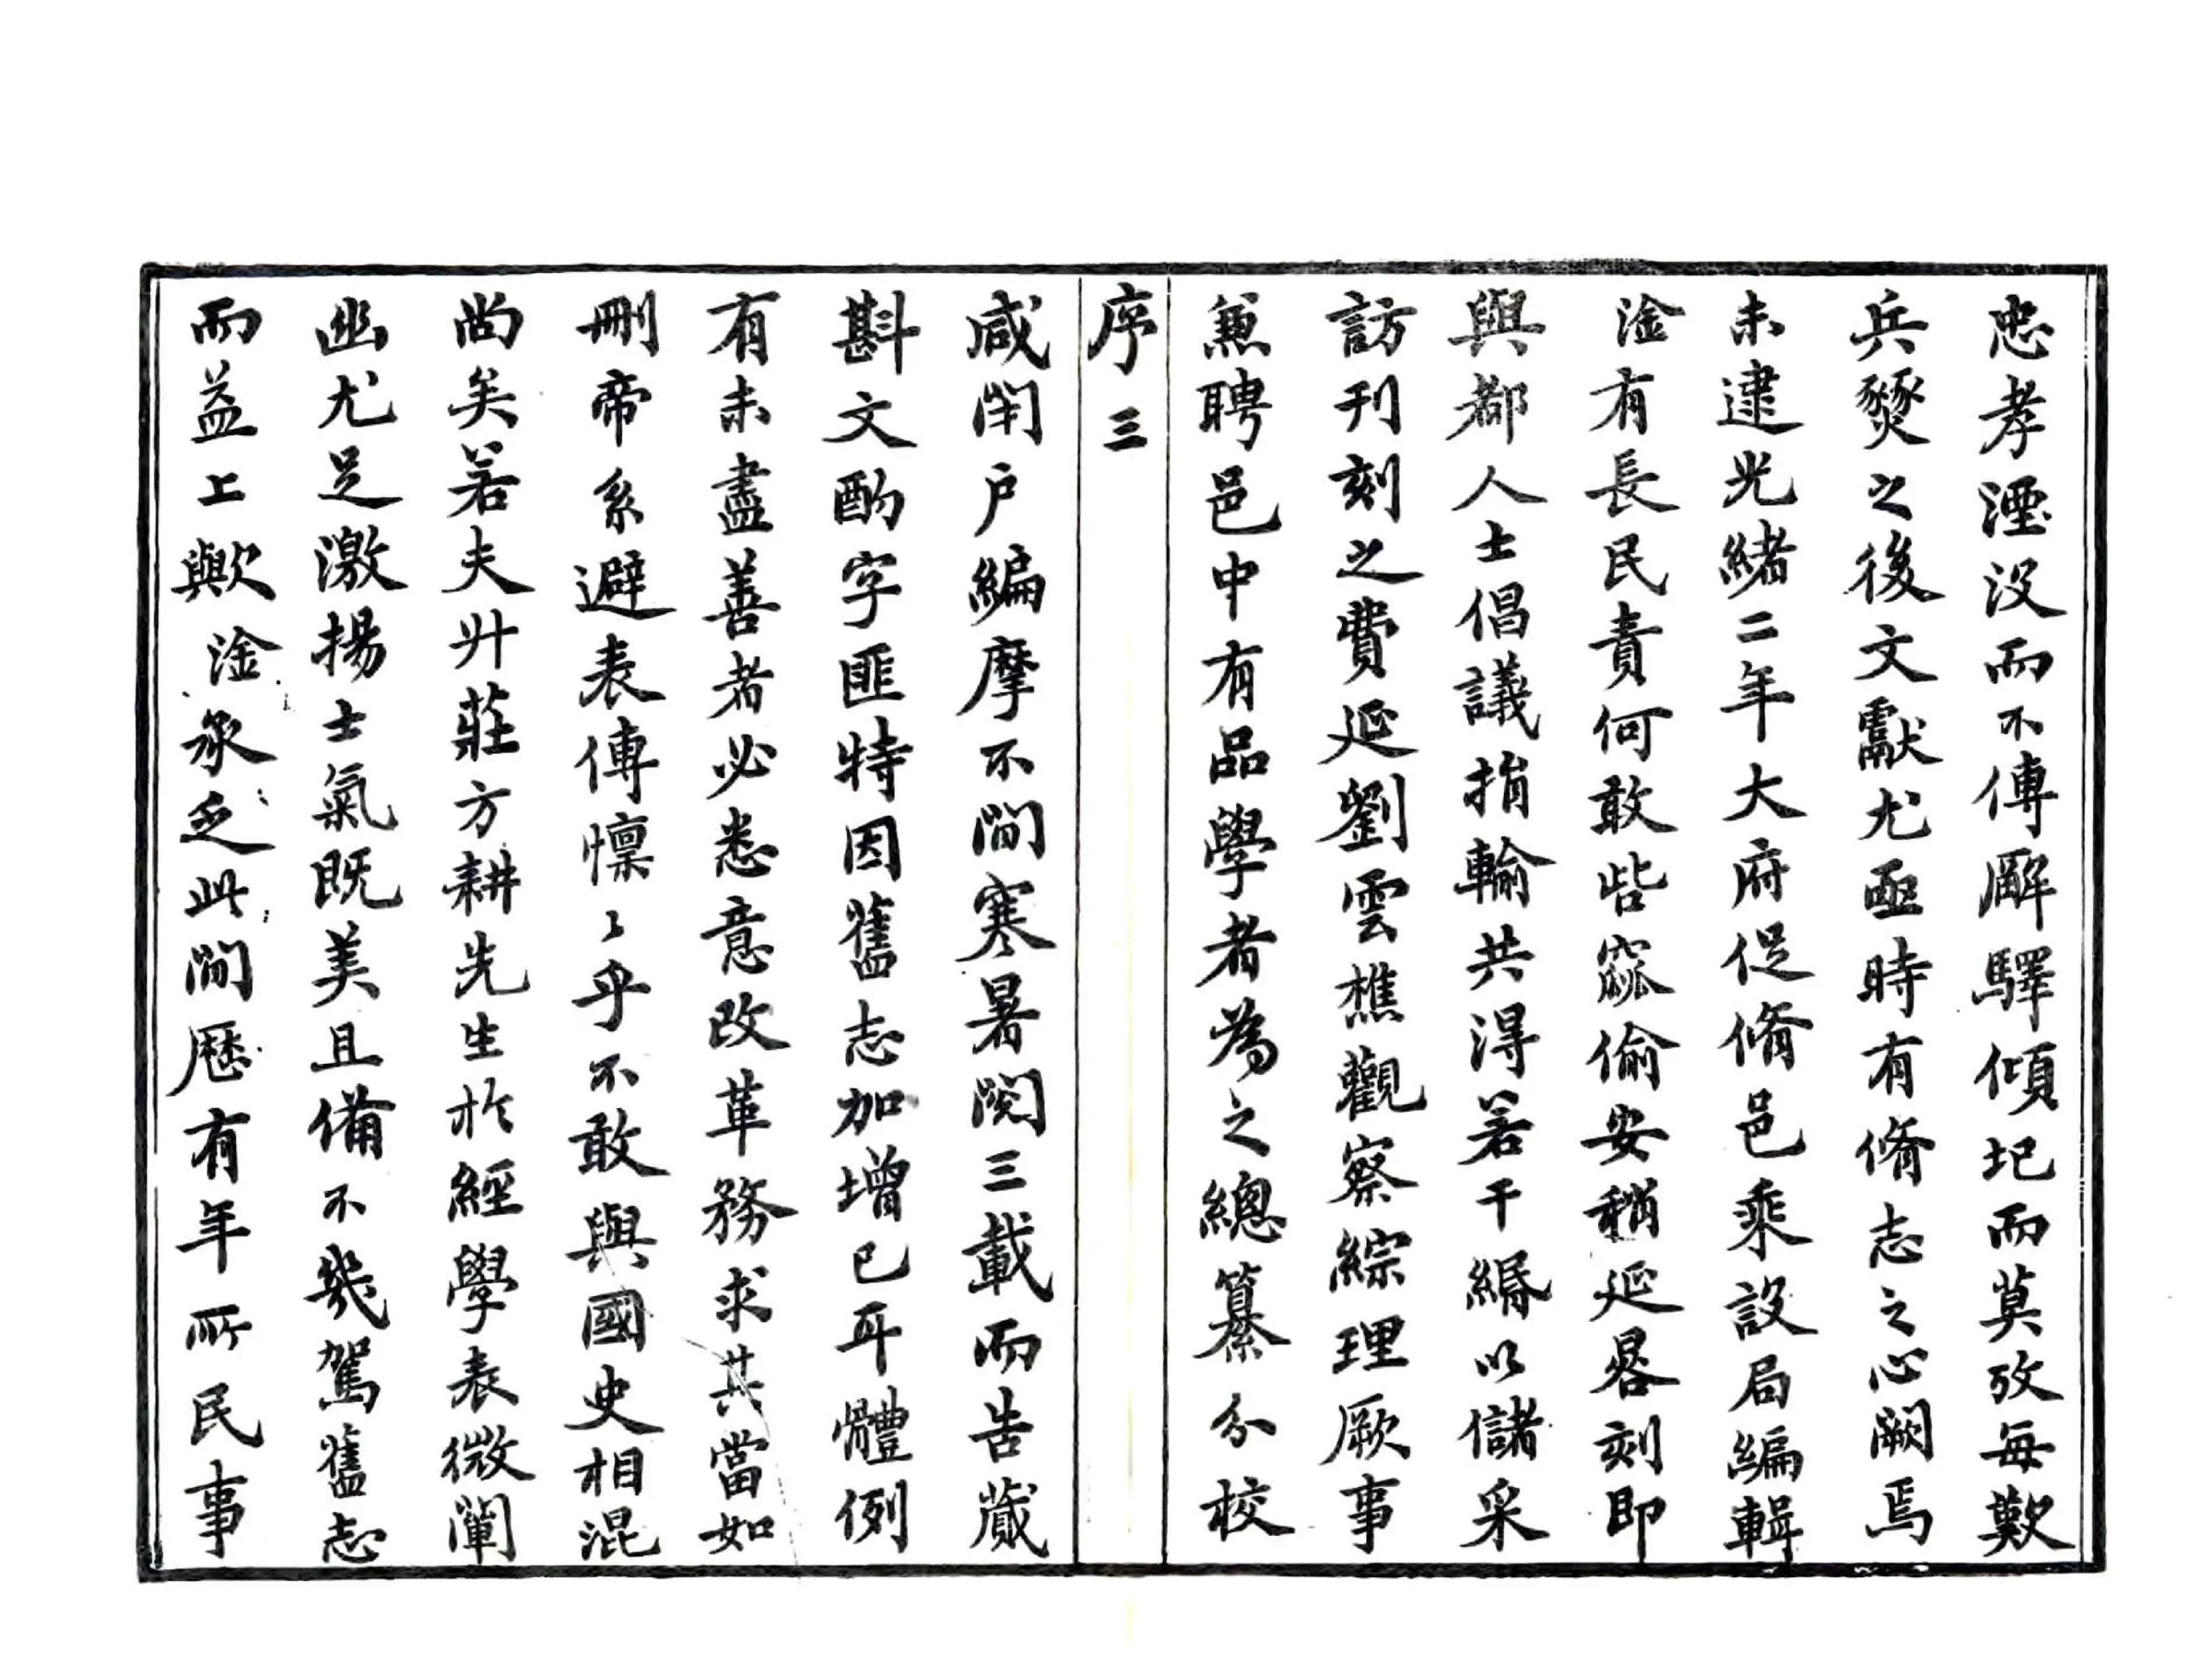 忠孝湮沒而不傳廨驛傾圮而莫攷每歎
兵燹之後文獻尤亟時有脩志之心闕焉
未逮光緒二年大府促脩邑乘設局編輯
淦有長民責何敢呰窳偷安稍延晷刻即
與都人士倡議捐輸共得若干緡以儲采
訪刊刻之費延劉雲樵觀察綜理厥事
兼聘邑中有品學者為之總纂分校
序三
咸閉户編摩不間寒暑閱三載而告蕆
斟文酌字匪特因舊志加增已耳體例
有未盡善者必悉意改革務求其當如
刪帝系避表傳懍〻乎不敢與國史相混
尚矣若夫升莊方耕先生於經學表微闡
幽尤足激揚士氣既美且備不幾駕舊志
而益上歟淦承乏此間歷有年所民事